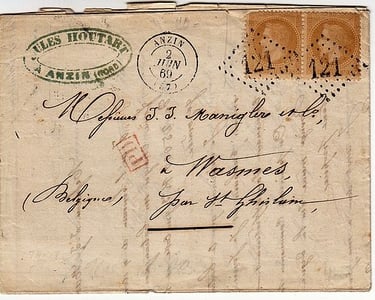 JULES HOUTART
A ANZIN (NORD)
ANZIN
2
JUIN
69
(57)
121
121
Messieurs J. J. Manigler & Cie,
PD
à Wasmes,
(Belgique) par St Ghislain,